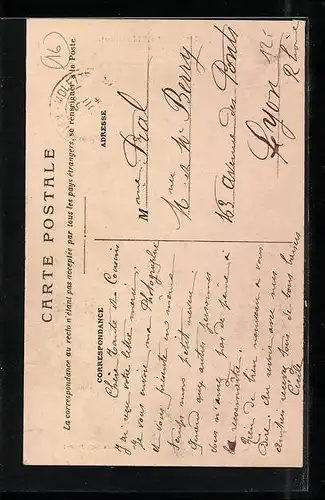 CARTE POSTALE
La correspondance au recto n'étant pas acceptée par tous les pays étrangers, se renseigner à la Poste
CORRESPONDANCE
Chère tante et Cousins
J'ai reçu votre lettre merci,
Je vous envoie ma Photographie
et vous présente en même
temps mes petit neveu.
Quand aux autres personnes
vous n'aurez pas de peine à
la reconnaître.
Rien de bien nouveau à vous
dire. Au revoir avec mes
cousins recevez tous de bons baisers
Cécile
ADRESSE
Mme Bral
Mce de Mr Berry
163 avenue des Ponts
Lyon
Rhône
(16)